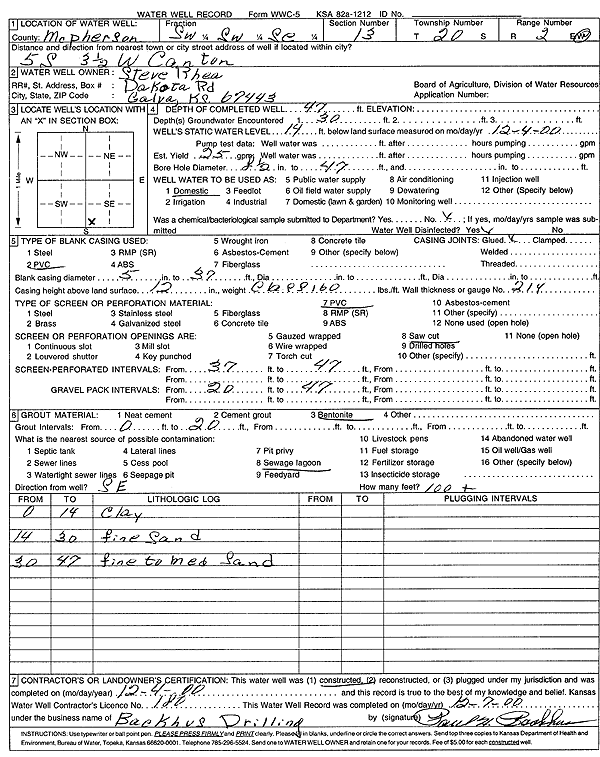 WATER WELL RECORD Form WWC-5 KSA 82a-1212 ID No.
1 LOCATION OF WATER WELL: Fraction Section Number Township Number Range Number
County: McPherson SW ¼ SW ¼ SE ¼ 13 T 20 S R 2 E/W
Distance and direction from nearest town or city street address of well if located within city?
5S 3½ W Canton
2 WATER WELL OWNER: Steve Rhea
RR#, St. Address, Box # : Dakota Rd Board of Agriculture, Division of Water Resources
City, State, ZIP Code : Galva, KS 67443 Application Number:
3 LOCATE WELL'S LOCATION WITH AN "X" IN SECTION BOX:
N
NW NE
W E
SW SE
X
S
1 Mile
4 DEPTH OF COMPLETED WELL 47 ft. ELEVATION:
Depth(s) Groundwater Encountered 1. 30 ft. 2. ft. 3. ft.
WELL'S STATIC WATER LEVEL 14 ft. below land surface measured on mo/day/yr 12-4-00
Pump test data: Well water was ft. after hours pumping gpm
Est. Yield 25 gpm Well water was ft. after hours pumping gpm
Bore Hole Diameter 8½ in. to 47 ft., and in. to ft.
WELL WATER TO BE USED AS: 5 Public water supply 8 Air conditioning 11 Injection well
1 Domestic 3 Feedlot 6 Oil field water supply 9 Dewatering 12 Other (Specify below)
2 Irrigation 4 Industrial 7 Domestic (lawn & garden) 10 Monitoring well
Was a chemical/bacteriological sample submitted to Department? Yes No ✓; If yes, mo/day/yrs sample was submitted
Water Well Disinfected? Yes ✓ No
5 TYPE OF BLANK CASING USED: 5 Wrought iron 8 Concrete tile CASING JOINTS: Glued ✓ Clamped
1 Steel 3 RMP (SR) 6 Asbestos-Cement 9 Other (specify below) Welded
2 PVC 4 ABS 7 Fiberglass Threaded
Blank casing diameter 5 in. to 37 ft., Dia in. to ft., Dia in. to ft.
Casing height above land surface 12 in., weight Class 160 lbs./ft. Wall thickness or gauge No. 214
TYPE OF SCREEN OR PERFORATION MATERIAL: 7 PVC 10 Asbestos-cement
1 Steel 3 Stainless steel 5 Fiberglass 8 RMP (SR) 11 Other (specify)
2 Brass 4 Galvanized steel 6 Concrete tile 9 ABS 12 None used (open hole)
SCREEN OR PERFORATION OPENINGS ARE: 5 Gauzed wrapped 8 Saw cut 11 None (open hole)
1 Continuous slot 3 Mill slot 6 Wire wrapped 9 Drilled holes
2 Louvered shutter 4 Key punched 7 Torch cut 10 Other (specify) ft.
SCREEN-PERFORATED INTERVALS: From 37 ft. to 47 ft., From ft. to ft.
From ft. to ft., From ft. to ft.
GRAVEL PACK INTERVALS: From 20 ft. to 47 ft., From ft. to ft.
From ft. to ft., From ft. to ft.
6 GROUT MATERIAL: 1 Neat cement 2 Cement grout 3 Bentonite 4 Other
Grout Intervals: From 0 ft. to 20 ft., From ft. to ft., From ft. to ft.
What is the nearest source of possible contamination: 10 Livestock pens 14 Abandoned water well
1 Septic tank 4 Lateral lines 7 Pit privy 11 Fuel storage 15 Oil well/Gas well
2 Sewer lines 5 Cess pool 8 Sewage lagoon 12 Fertilizer storage 16 Other (specify below)
3 Watertight sewer lines 6 Seepage pit 9 Feedyard 13 Insecticide storage
Direction from well? SE How many feet? 100 +
FROM TO LITHOLOGIC LOG FROM TO PLUGGING INTERVALS
0 14 Clay
14 30 fine sand
30 47 fine to med sand
7 CONTRACTOR'S OR LANDOWNER'S CERTIFICATION: This water well was (1) constructed, (2) reconstructed, or (3) plugged under my jurisdiction and was
completed on (mo/day/year) 12-4-00 and this record is true to the best of my knowledge and belief. Kansas
Water Well Contractor's Licence No. 180 This Water Well Record was completed on (mo/day/yr) 12-7-00
under the business name of Backhus Drilling by (signature) Paul N. Backhus
INSTRUCTIONS: Use typewriter or ball point pen. PLEASE PRESS FIRMLY and PRINT clearly. Please fill in blanks, underline or circle the correct answers. Send top three copies to Kansas Department of Health and
Environment, Bureau of Water, Topeka, Kansas 66620-0001. Telephone 785-296-5524. Send one to WATER WELL OWNER and retain one for your records. Fee of $5.00 for each constructed well.